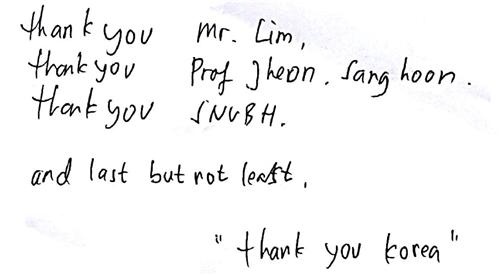 thank you Mr. Lim,
thank you Prof Jheon. Sang hoon.
thank you SNUBH.
and last but not least,
"thank you korea"